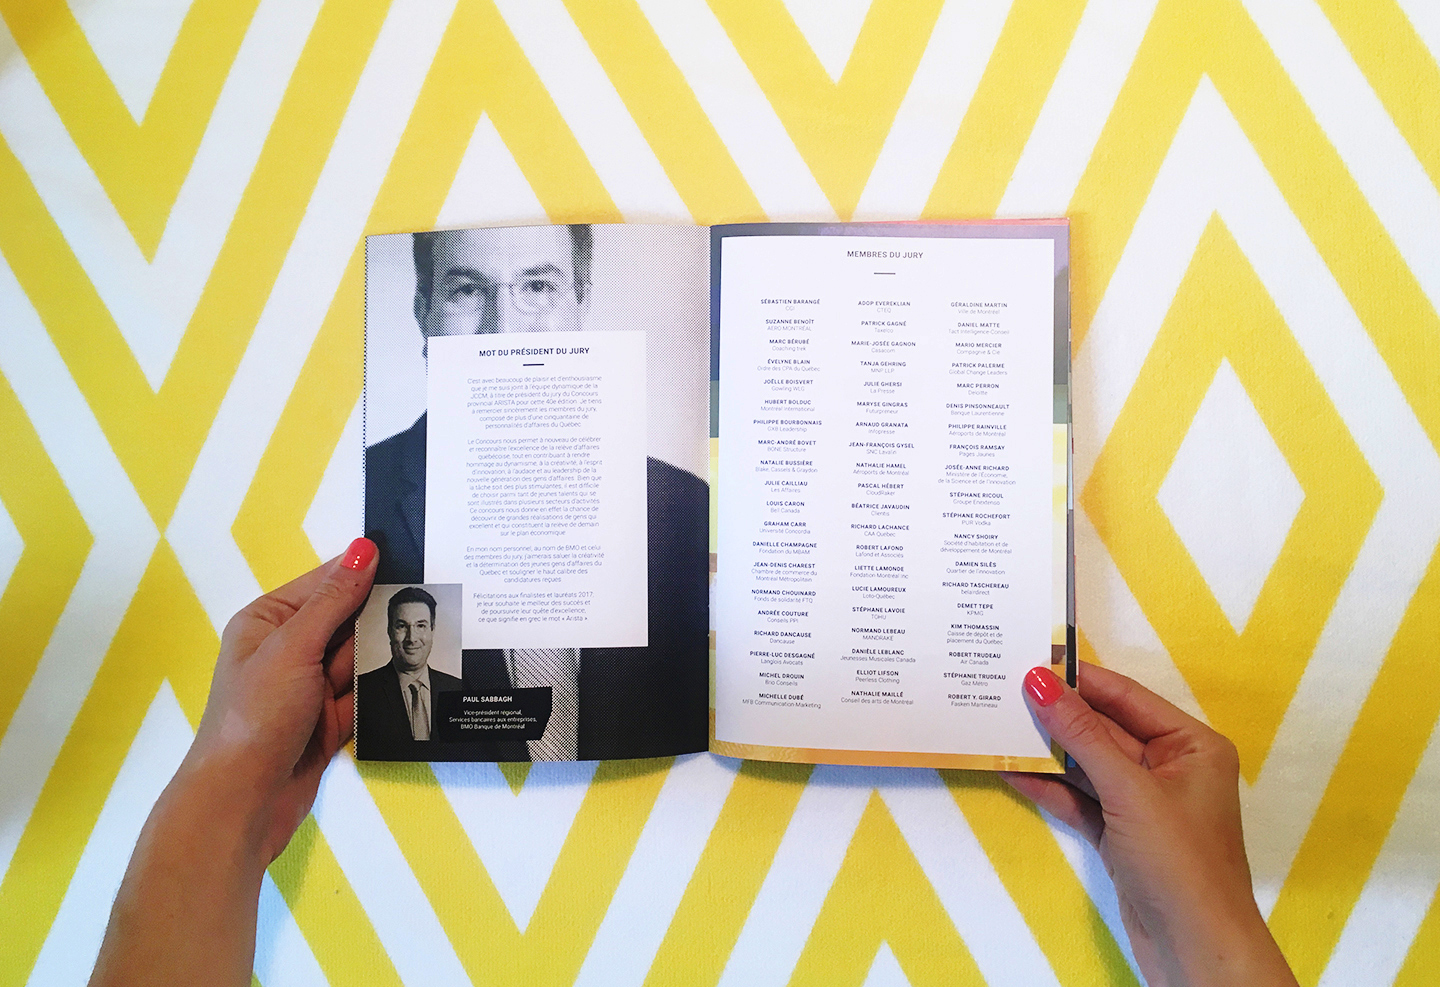 MOT DU PRÉSIDENT DU JURY
C'est avec beaucoup de plaisir et d'enthousiasme
que je me suis joint à l'équipe dynamique de la
JCCM, à titre de président du jury du Concours
provincial ARISTA pour cette 40e édition. Je tiens
à remercier sincèrement les membres du jury,
composé de plus d'une cinquantaine de
personnalités d'affaires du Québec.
Le Concours nous permet à nouveau de célébrer
et reconnaître l'excellence de la relève d'affaires
québécoise, tout en contribuant à rendre
hommage au dynamisme, à la créativité, à l'esprit
d'innovation, à l'audace et au leadership de la
nouvelle génération des gens d'affaires. Bien que
la tâche soit des plus stimulantes, il est difficile
de choisir parmi tant de jeunes talents qui se
sont illustrés dans plusieurs secteurs d'activités.
Ce concours nous donne en effet la chance de
découvrir de grandes réalisations de gens qui
excellent et qui constituent la relève de demain
sur le plan économique.
En mon nom personnel, au nom de BMO et celui
des membres du jury, j'aimerais saluer la créativité
et la détermination des jeunes gens d'affaires du
Québec et souligner le haut calibre des
candidatures reçues.
Félicitations aux finalistes et lauréats 2017,
je leur souhaite le meilleur des succès et
de poursuivre leur quête d'excellence,
ce que signifie en grec le mot « Arista »
PAUL SABBAGH
Vice-président régional,
Services bancaires aux entreprises,
BMO Banque de Montréal
MEMBRES DU JURY
SÉBASTIEN BARANGÉ
CGI
SUZANNE BENOÎT
AÉRO MONTRÉAL
MARC BÉRUBÉ
Coaching
ÉVELYNE BLAIN
Ordre des CPA du Québec
JOËLLE BOISVERT
Gowling WLG
HUBERT BOLDUC
Montréal International
PHILIPPE BOURBONNAIS
Leadership
MARC-ANDRÉ BOVET
BONE Structure
NATALIE BUSSIÈRE
Blake, Cassels & Graydon
JULIE CAILLIAU
Les Affaires
LOUIS CARON
Bell Canada
GRAHAM CARR
Université Concordia
DANIELLE CHAMPAGNE
Fondation du MBAM
JEAN-DENIS CHAREST
Chambre de commerce du
Montréal Métropolitain
NORMAND CHOUINARD
Fonds de solidarité FTQ
ANDRÉE COUTURE
Conseils PPI
RICHARD DANCAUSE
Dancause
PIERRE-LUC DESGAGNÉ
Langlois Avocats
MICHEL DROUIN
Brio Conseils
MICHELLE DUBÉ
MFB Communication-Marketing
ADOP EVEREKLIAN
CTEQ
PATRICK GAGNÉ
Taxelco
MARIE-JOSÉE GAGNON
Casacom
TANJA GEHRING
MNP LLP
JULIE GHERSI
La Presse
MARYSE GINGRAS
Futurpreneur
ARNAUD GRANATA
Infopresse
JEAN-FRANÇOIS GYSEL
SNC Lavalin
NATHALIE HAMEL
Aéroports de Montréal
PASCAL HÉBERT
CloudRaker
BÉATRICE JAVAUDIN
Clientis
RICHARD LACHANCE
CAA Québec
ROBERT LAFOND
Lafond et Associés
LIETTE LAMONDE
Fondation Montréal inc
LUCIE LAMOUREUX
Loto-Québec
STÉPHANE LAVOIE
TOHU
NORMAND LEBEAU
MANDRAKE
DANIÈLE LEBLANC
Jeunesses Musicales Canada
ELLIOT LIFSON
Peerless Clothing
NATHALIE MAILLÉ
Conseil des arts de Montréal
GÉRALDINE MARTIN
Ville de Montréal
DANIEL MATTE
Tact Intelligence Conseil
MARIO MERCIER
Compagnie & Cie
PATRICK PALERME
Global Change Leaders
MARC PERRON
Deloitte
DENIS PINSONNEAULT
Banque Laurentienne
PHILIPPE RAINVILLE
Aéroports de Montréal
FRANÇOIS RAMSAY
Pages Jaunes
JOSÉE-ANNE RICHARD
Ministère de l'Économie,
de la Science et de l'Innovation
STÉPHANE RICOUL
Groupe
STÉPHANE ROCHEFORT
PUR Vodka
NANCY SHOIRY
Société d'habitation et de
développement de Montréal
DAMIEN SILÈS
Quartier de l'innovation
RICHARD TASCHEREAU
belairdirect
DEMET TEPE
KPMG
KIM THOMASSIN
Caisse de dépôt et de
placement du Québec
ROBERT TRUDEAU
Air Canada
STÉPHANIE TRUDEAU
Gaz Métro
ROBERT Y. GIRARD
Fasken Martineau